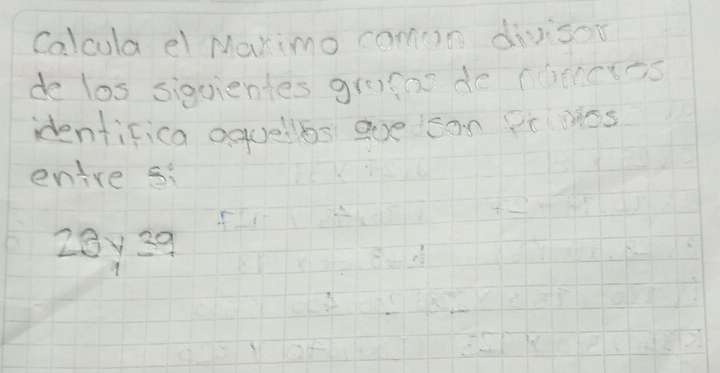 Calcula el Maximo comun divisor
de los siguientes grupos de números
identifica aquellos que son Primos
entre si
28 y 39